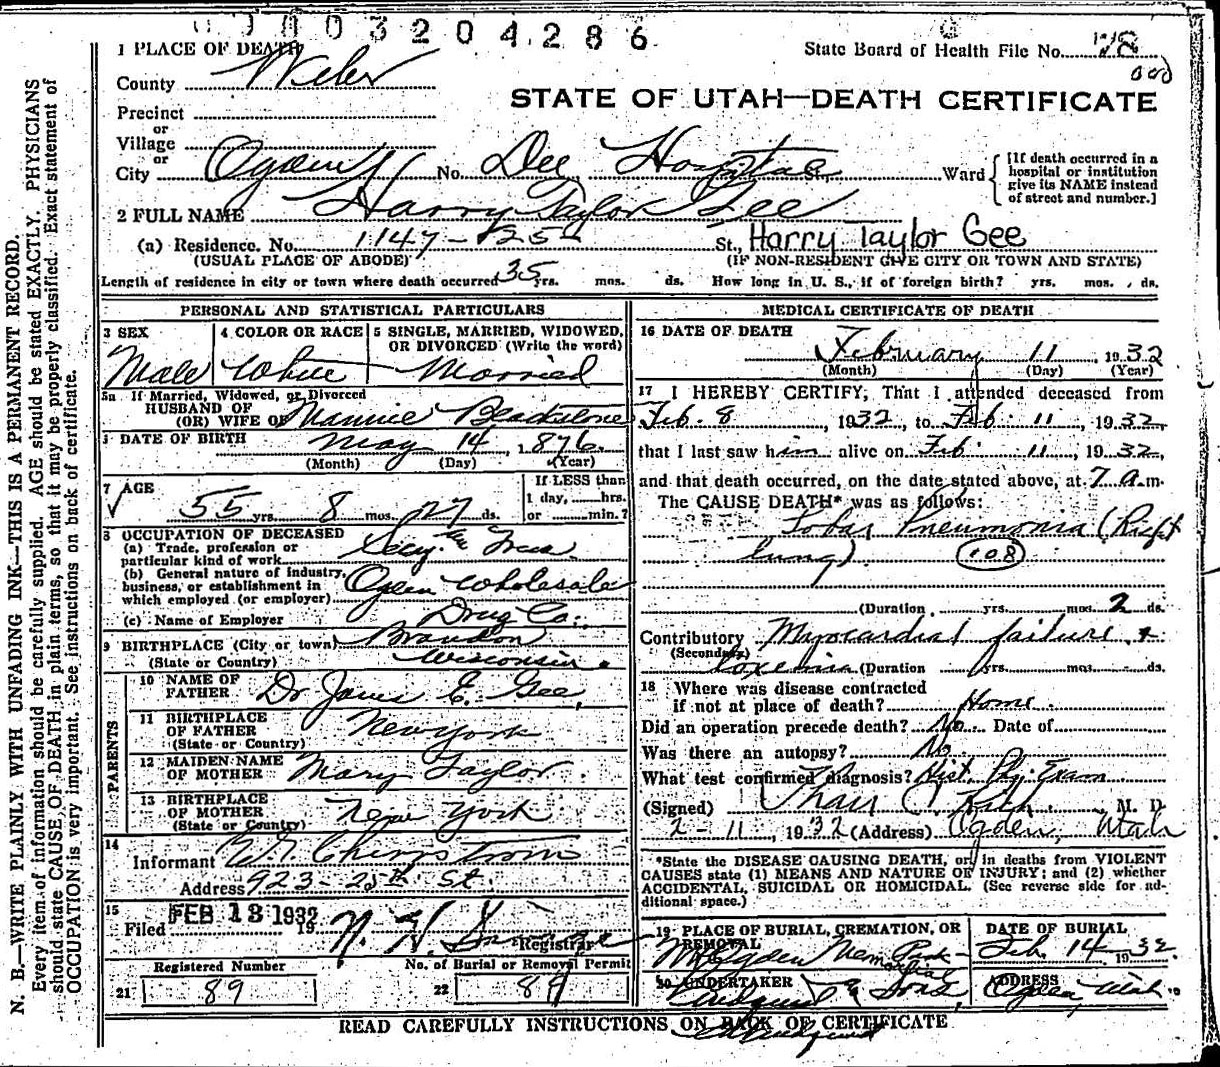 0003204286
1 PLACE OF DEATH
State Board of Health File No. 78
County Weber
STATE OF UTAH—DEATH CERTIFICATE
Precinct
or
Village
or
City Ogden No. Dee Hospital St., Ward
[If death occurred in a hospital or institution give its NAME instead of street and number.]
2 FULL NAME Harry Taylor Gee
(a) Residence. No. 1147-25th St., Harry Taylor Gee
(USUAL PLACE OF ABODE) (IF NON-RESIDENT GIVE CITY OR TOWN AND STATE)
Length of residence in city or town where death occurred 35 yrs. mos. ds. How long in U. S., if of foreign birth? yrs. mos. ds.
PERSONAL AND STATISTICAL PARTICULARS
3 SEX
Male
4 COLOR OR RACE
White
5 SINGLE, MARRIED, WIDOWED, OR DIVORCED (Write the word)
Married
5a If Married, Widowed, or Divorced
HUSBAND OF
(OR) WIFE OF Mannie Blackstone
6 DATE OF BIRTH May 14, 1876
(Month) (Day) (Year)
7 AGE
55 yrs. 8 mos. 27 ds.
If LESS than
1 day, hrs.
or min.?
8 OCCUPATION OF DECEASED
(a) Trade, profession or
particular kind of work Secy. Treas
(b) General nature of industry,
business, or establishment in
which employed (or employer) Ogden Wholesale
(c) Name of Employer Drug Co.
9 BIRTHPLACE (City or town) Brandon
(State or Country) Wisconsin.
PARENTS
10 NAME OF
FATHER Dr James E. Gee,
11 BIRTHPLACE
OF FATHER New York
(State or Country)
12 MAIDEN NAME
OF MOTHER Mary Taylor
13 BIRTHPLACE
OF MOTHER New York
(State or Country)
14
Informant W.
Address 923-25th St.
15
Filed FEB 13 1932 19
Registrar
Registered Number
21 89
No. of Burial or Removal Permit
22 89
MEDICAL CERTIFICATE OF DEATH
16 DATE OF DEATH
February 11, 1932
(Month) (Day) (Year)
17 I HEREBY CERTIFY, That I attended deceased from
Feb. 8, 1932, to Feb. 11, 1932,
that I last saw him alive on Feb. 11, 1932,
and that death occurred, on the date stated above, at 7 a.m.
The CAUSE DEATH* was as follows:
Lobar Pneumonia (Right
lung) 108
(Duration yrs. mos. 2 ds.
Contributory Myocardial failure +
(Secondary) toxemia (Duration yrs. mos. ds.
18 Where was disease contracted
if not at place of death? Home
Did an operation precede death? No Date of
Was there an autopsy? No
What test confirmed diagnosis? Hist. Phy. Exam
(Signed) M. D.
2-11, 1932 (Address) Ogden, Utah
*State the DISEASE CAUSING DEATH, or, in deaths from VIOLENT
CAUSES state (1) MEANS AND NATURE OF INJURY; and (2) whether
ACCIDENTAL, SUICIDAL OR HOMICIDAL. (See reverse side for ad-
ditional space.)
19 PLACE OF BURIAL, CREMATION, OR
REMOVAL
Ogden Memorial Park
DATE OF BURIAL
Feb. 14 1932
20 UNDERTAKER
& Sons,
ADDRESS
Ogden, Utah.
READ CAREFULLY INSTRUCTIONS ON BACK OF CERTIFICATE
N. B.—WRITE PLAINLY WITH UNFADING INK—THIS IS A PERMANENT RECORD.
Every item of information should be carefully supplied. AGE should be stated EXACTLY. PHYSICIANS
should state CAUSE OF DEATH in plain terms, so that it may be properly classified. Exact statement of
OCCUPATION is very important. See instructions on back of certificate.